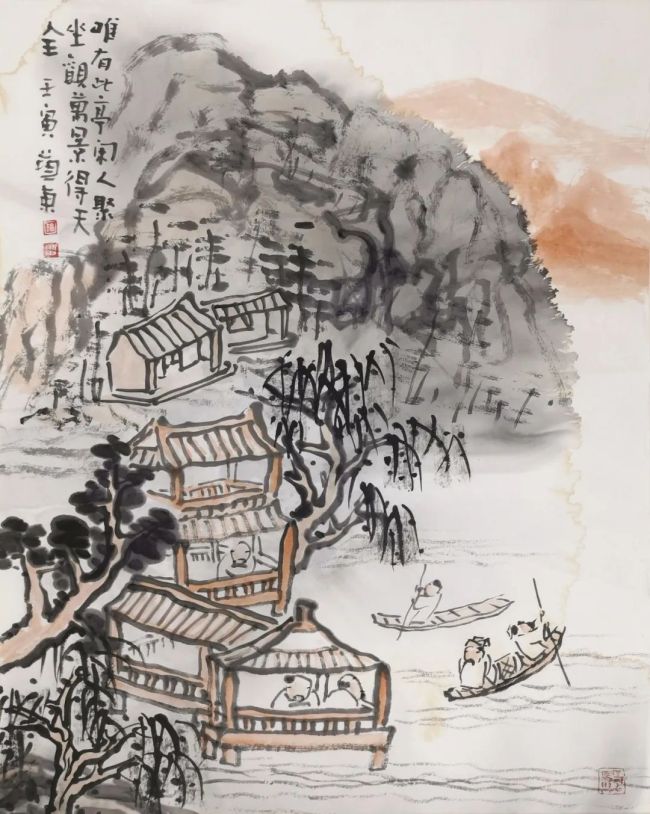 唯有此亭闲人聚
坐觀萬景得天
全 壬寅